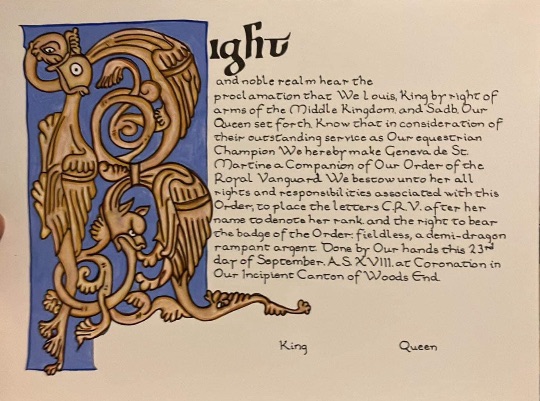 Right
and noble realm hear the
proclamation that We Louis, King by right of
arms of the Middle Kingdom, and Sadb, Our
Queen set forth. Know that in consideration of
their outstanding service as Our equestrian
Champion We hereby make Geneva de St.
Martine a Companion of Our Order of the
Royal Vanguard. We bestow unto her all
rights and responsibilities associated with this
Order, to place the letters C.R.V. after her
name to denote her rank and the right to bear
the badge of the Order: fieldless, a demi-dragon
rampant argent. Done by Our hands this 23rd
day of September, A.S. XVIII, at Coronation in
Our Incipient Canton of Woods End
King Queen